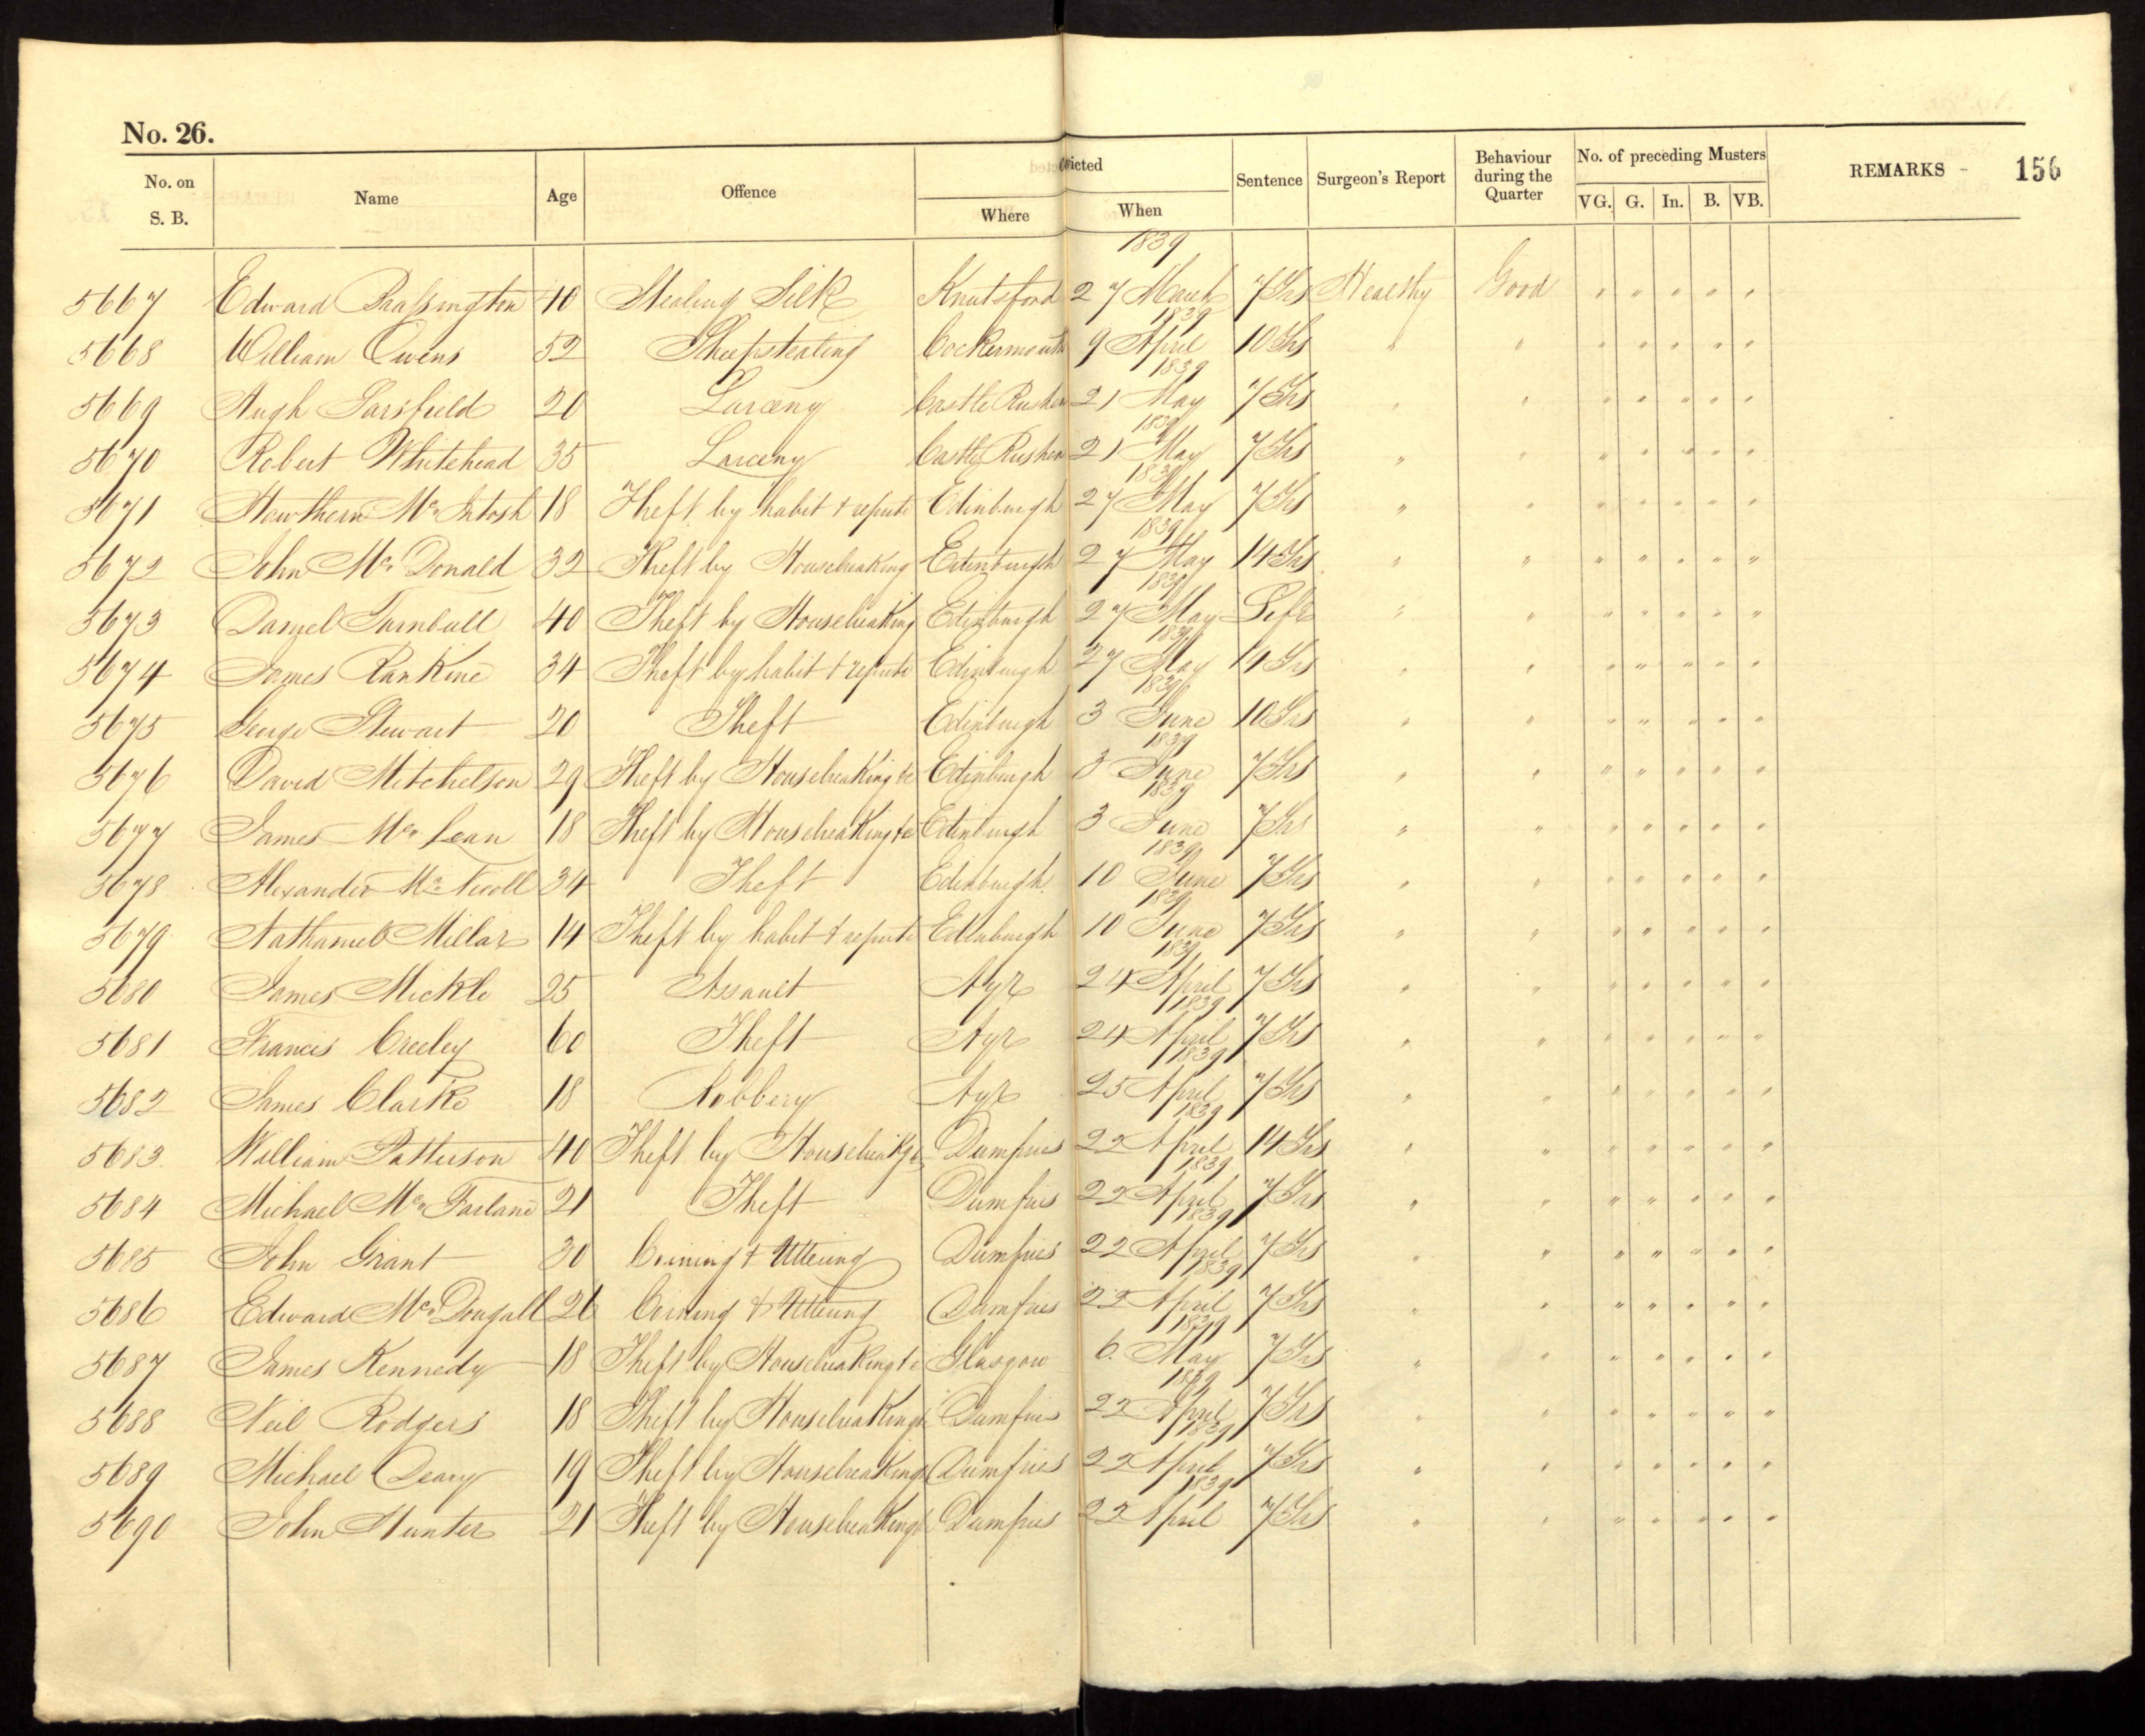 No. 26.
No. on S. B. Name Age Offence Convicted Where When Sentence Surgeon's Report Behaviour during the Quarter No. of preceding Musters VG. G. In. B. VB. REMARKS 156
1839
5667 Edward Brassington 40 Stealing Silk Knutsford 27 March 7 Yrs Healthy Good " " " " "
1839
5668 William Owens 52 Sheepstealing Cockermouth 9 April 10 Yrs " " " " " " "
1839
5669 Hugh Garsfield 20 Larceny Castle Rushen 21 May 7 Yrs " " " " " " "
1839
5670 Robert Whitehead 35 Larceny Castle Rushen 21 May 7 Yrs " " " " " " "
1839
5671 Hawthern Mc Intosh 18 Theft by habit & repute Edinburgh 27 May 7 Yrs " " " " " " "
1839
5672 John Mc Donald 32 Theft by Housebreaking Edinburgh 27 May 14 Yrs " " " " " " "
1839
5673 Daniel Turnbull 40 Theft by Housebreaking Edinburgh 27 May Life " " " " " " "
1839
5674 James Rankine 34 Theft by habit & repute Edinburgh 27 May 14 Yrs " " " " " " "
1839
5675 George Stewart 20 Theft Edinburgh 3 June 10 Yrs " " " " " " "
1839
5676 David Mitchelson 29 Theft by Housebreaking &c Edinburgh 3 June 7 Yrs " " " " " " "
1839
5677 James Mc Lean 18 Theft by Housebreaking &c Edinburgh 3 June 7 Yrs " " " " " " "
1839
5678 Alexander Mc Nicoll 34 Theft Edinburgh 10 June 7 Yrs " " " " " " "
1839
5679 Nathaniel Millar 14 Theft by habit & repute Edinburgh 10 June 7 Yrs " " " " " " "
1839
5680 James Mickle 25 Assault Ayr 24 April 7 Yrs " " " " " " "
1839
5681 Francis Creeley 60 Theft Ayr 24 April 7 Yrs " " " " " " "
1839
5682 James Clarke 18 Robbery Ayr 25 April 7 Yrs " " " " " " "
1839
5683 William Patterson 40 Theft by Dumfries 22 April 14 Yrs " " " " " " "
1839
5684 Michael Mc Farlane 21 Theft Dumfries 22 April 7 Yrs " " " " " " "
1839
5685 John Grant 30 Coining & Uttering Dumfries 22 April 7 Yrs " " " " " " "
1839
5686 Edward Mc Dougall 26 Coining & Uttering Dumfries 22 April 7 Yrs " " " " " " "
1839
5687 James Kennedy 18 Theft by Housebreaking &c Glasgow 6 May 7 Yrs " " " " " " "
1839
5688 Neil Rodgers 18 Theft by Housebreaking Dumfries 22 April 7 Yrs " " " " " " "
1839
5689 Michael Deary 19 Theft by Housebreaking Dumfries 22 April 7 Yrs " " " " " " "
1839
5690 John Hunter 21 Theft by Housebreaking Dumfries 22 April 7 Yrs " " " " " " "